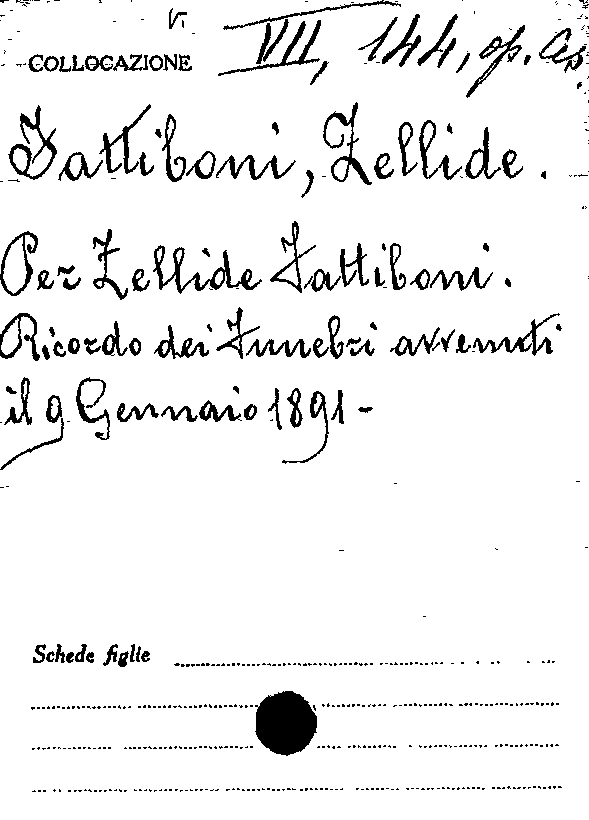 V.
COLLOCAZIONE VII, 144, op. Ces.
Fattiboni, Zellide.
Per Zellide Fattiboni.
Ricordo dei Funebri avvenuti
il 9 Gennaio 1891-
Schede figlie